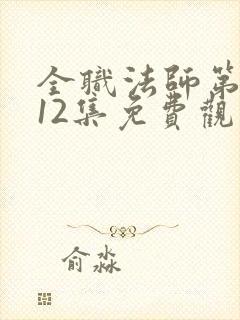 全職法師第
12集免費觀
俞淼